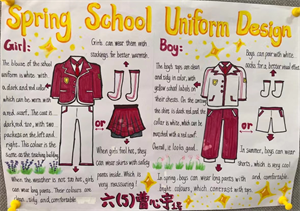 Spring School Uniform Design
Girl:
Girls can wear them with
stockings for better warmth.
The blouse of the school
uniform is white with
a dark red collar
which can be worn with
a red
dark red, too, with two
pockets on the left and
right. This colour is the
same as the
or
When girls feel hot, they
can wear skirts with safety
pants inside. Which is
very
When the weather is not too hot, girls
can wear long pants. These colours are
clean, tidy, and comfortable.
Boy:
Boys can pair with white
socks for a better visual effect.
The boy's tops are clean
and tidy in color, with
yellow school labels on
their chests. On the inside,
the shirt is dark red and
color is white, which can be
matched with a red
Overall, it looks like a
or
In summer, boys can wear
shorts, which is very cool
and comfortable.
In spring, boys can wear long pants with
colours, which contrast with tops.
六(5)曹心